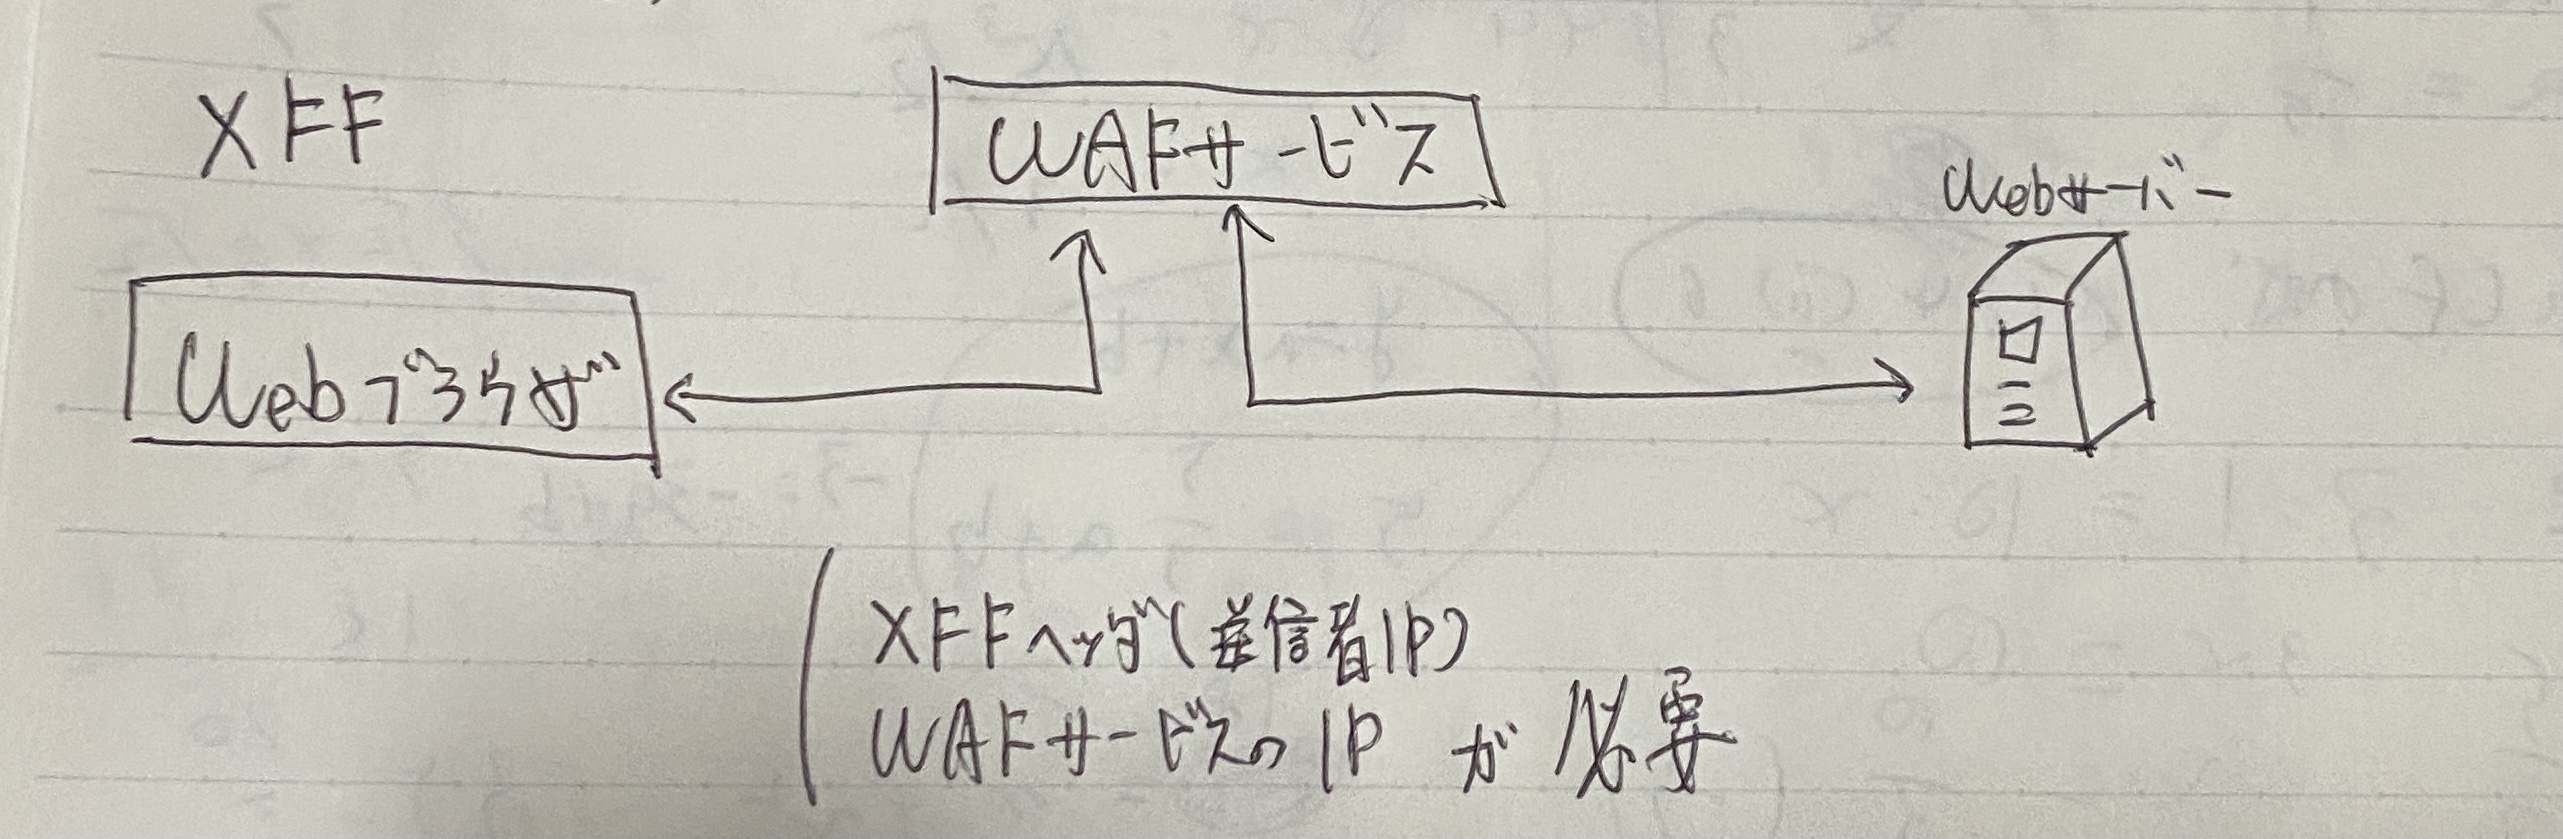 XFF
WAFサービス
Webサーバー
Webブラウザ
XFFヘッダ(送信者IP)
WAFサービスのIP が 必要